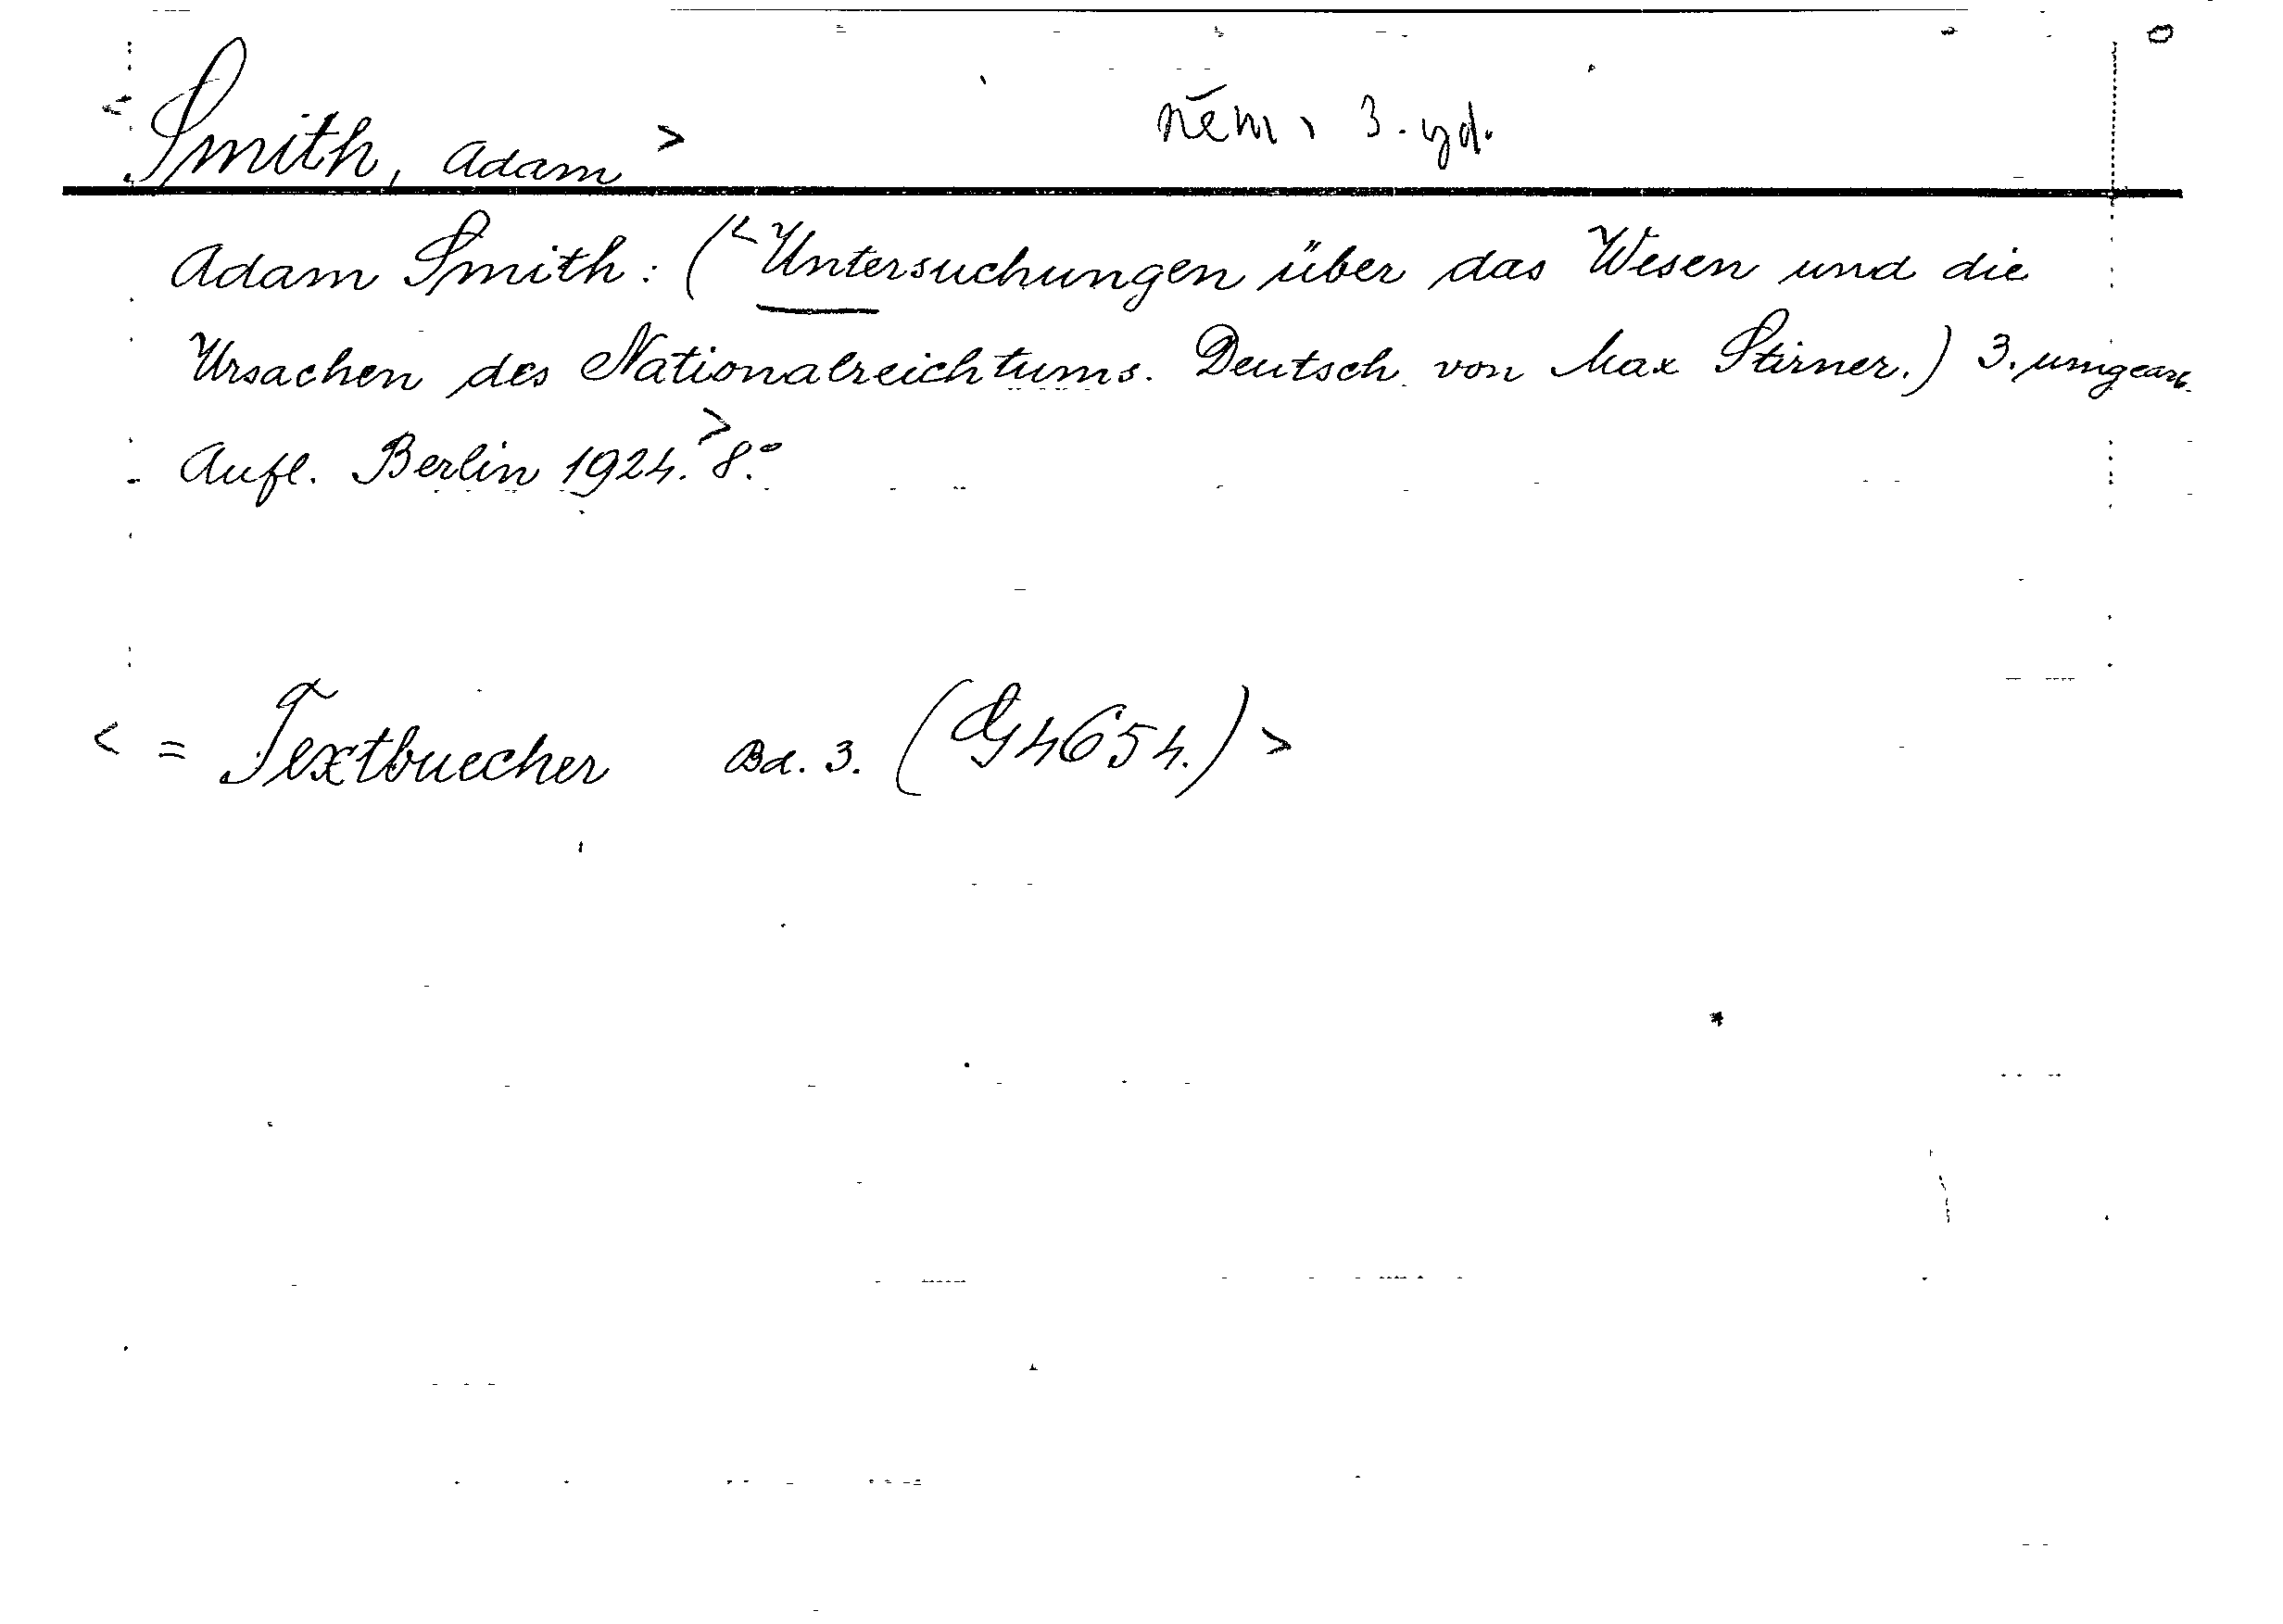 <Smith, Adam> něm, 3. yd.
Adam Smith: (<Untersuchungen über das Wesen und die
Ursachen des Nationalreichtums. Deutsch von Max Stirner.) 3. umgearb.
Aufl. Berlin 1924.> 8.°
< = Textbuecher Bd. 3. (G4654.) >